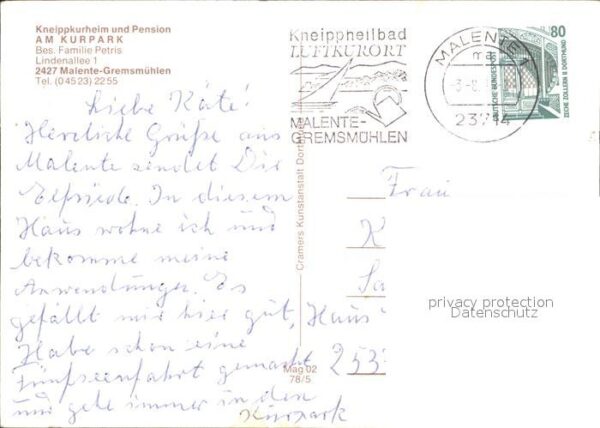 Kneippkurheim und Pension
AM KURPARK
Bes. Familie Petris
Lindenallee 1
2427 Malente-Gremsmühlen
Tel. (0 45 23) 22 55
Kneippheilbad
LUFTKURORT
MALENTE-
GREMSMÜHLEN
MALENTE 1
ma
23714
80
DEUTSCHE BUNDESPOST
ZECHE ZOLLERN II, DORTMUND
Liebe Käte!
Herzliche Grüße aus
Malente sendet Dir
Elfriede. In diesem
Haus wohne ich und
bekomme meine
Anwendungen. Es
gefällt mir hier gut,
Habe schon eine
Fünfseenfahrt gemacht
und gehe immer in den
Kurpark
Cramers Kunstanstalt Dortmund
Mag 02
78/5
Frau
K
Sa
Haus
253
privacy protection
Datenschutz